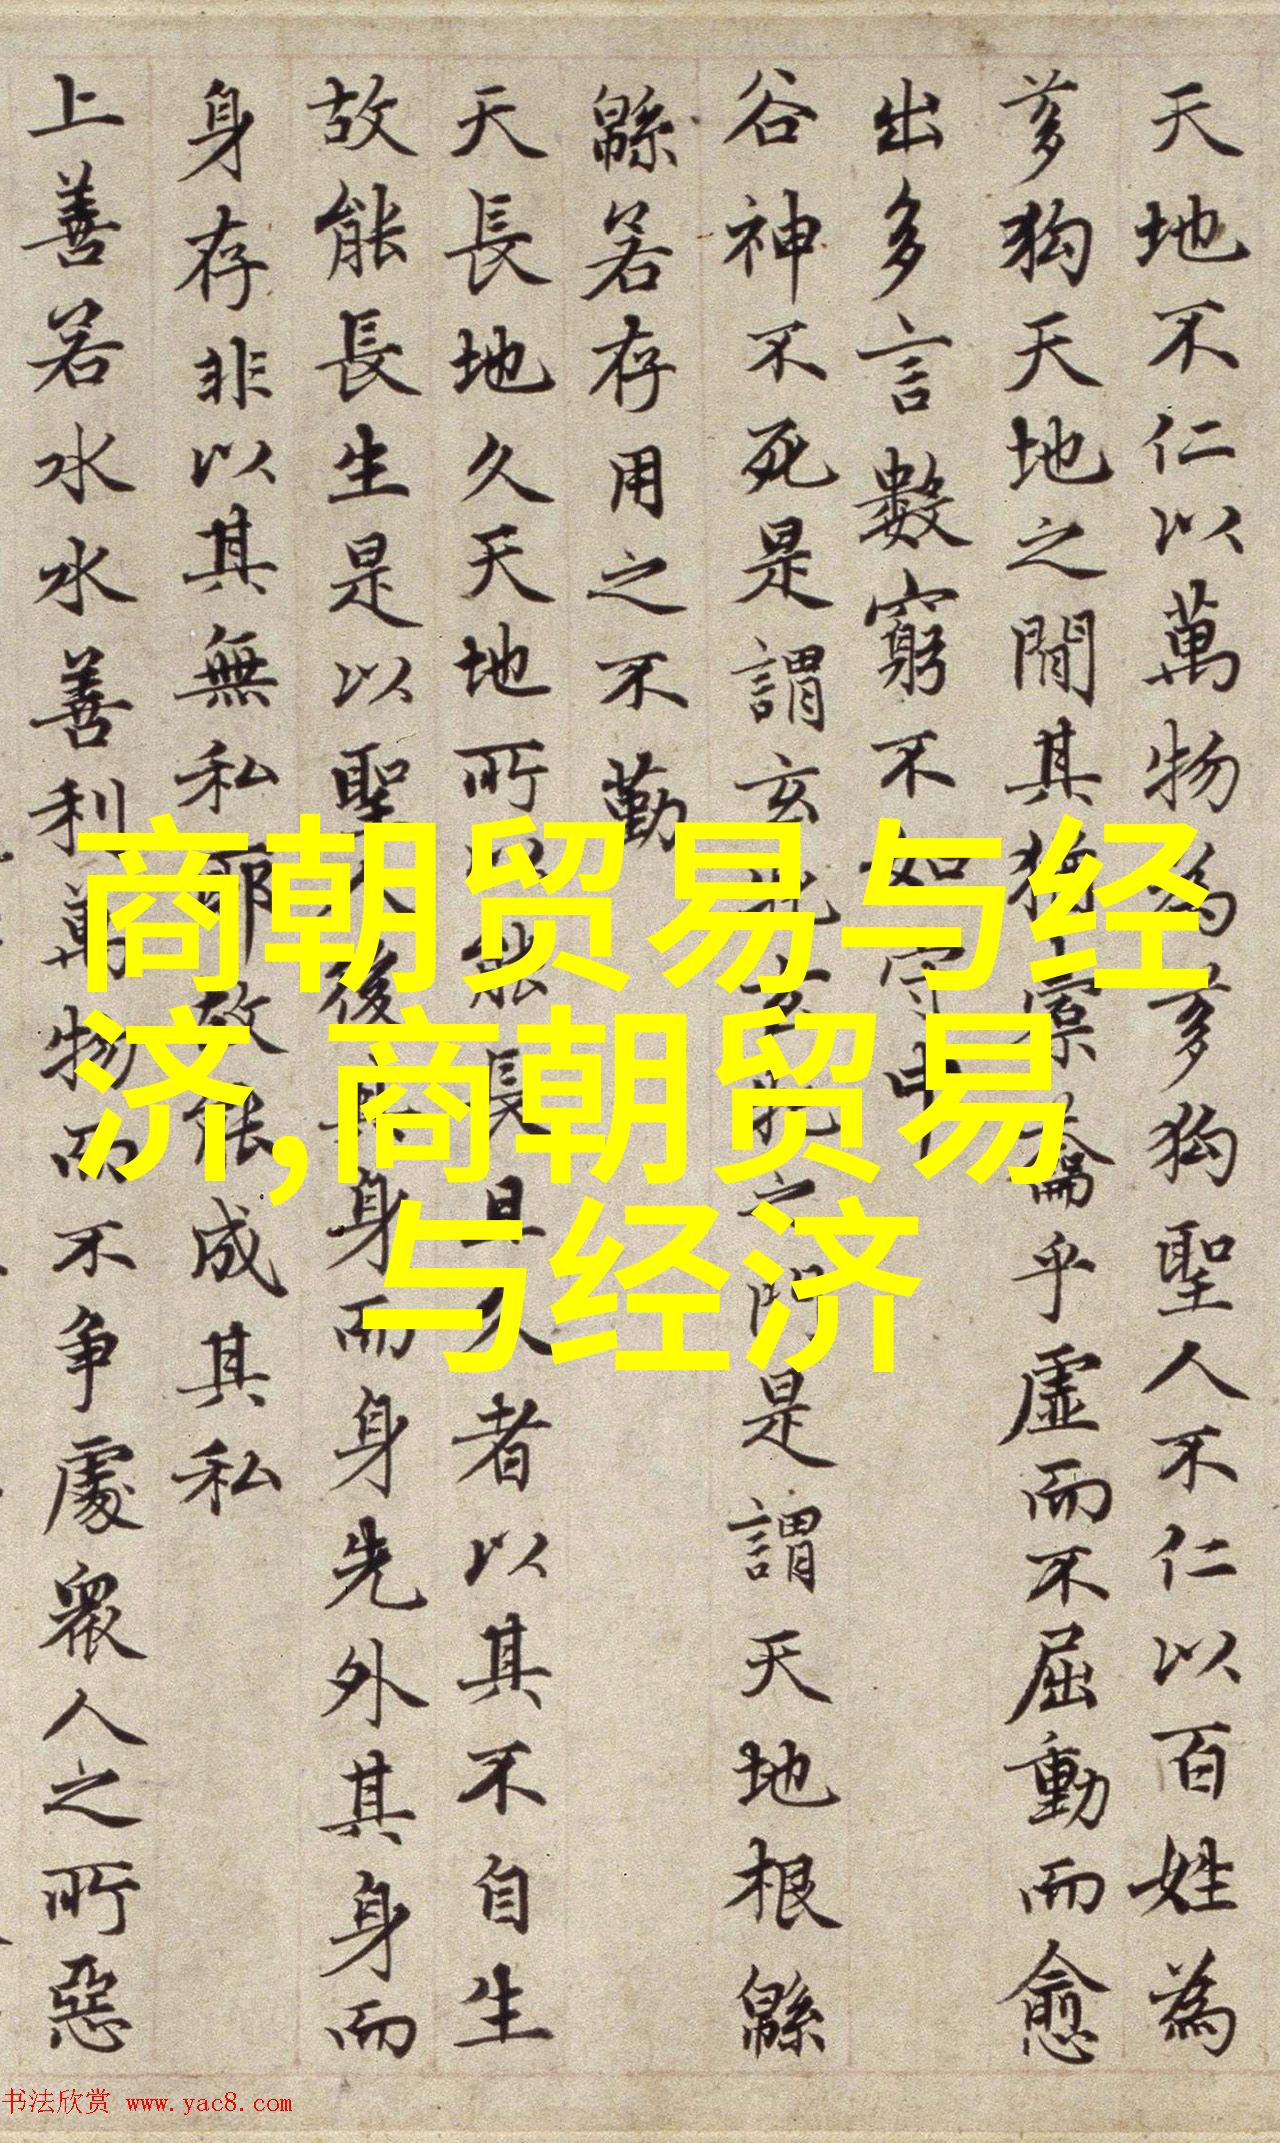 天地不仁以萬物為芻狗聖人不仁以百姓為
芻狗天地之間其猶橐籥乎虛而不屈動而愈
出多言數窮不如守中
谷神不死是謂玄牝玄牝之門是謂天地根緜
緜若存用之不勤
天長地久天地所以能長且久者以其不自生
故能長生是以聖人後其身而身先外其身而
身存非以其無私耶故能成其私
上善若水水善利萬物而不争處衆人之所惡
商朝贸易与经
济,商朝贸易
与经济
书法欣赏 www.yac8.com